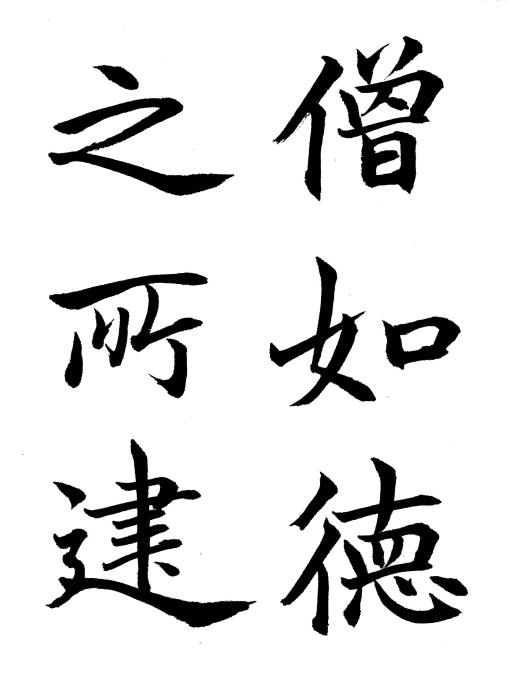 僧如德
之所建